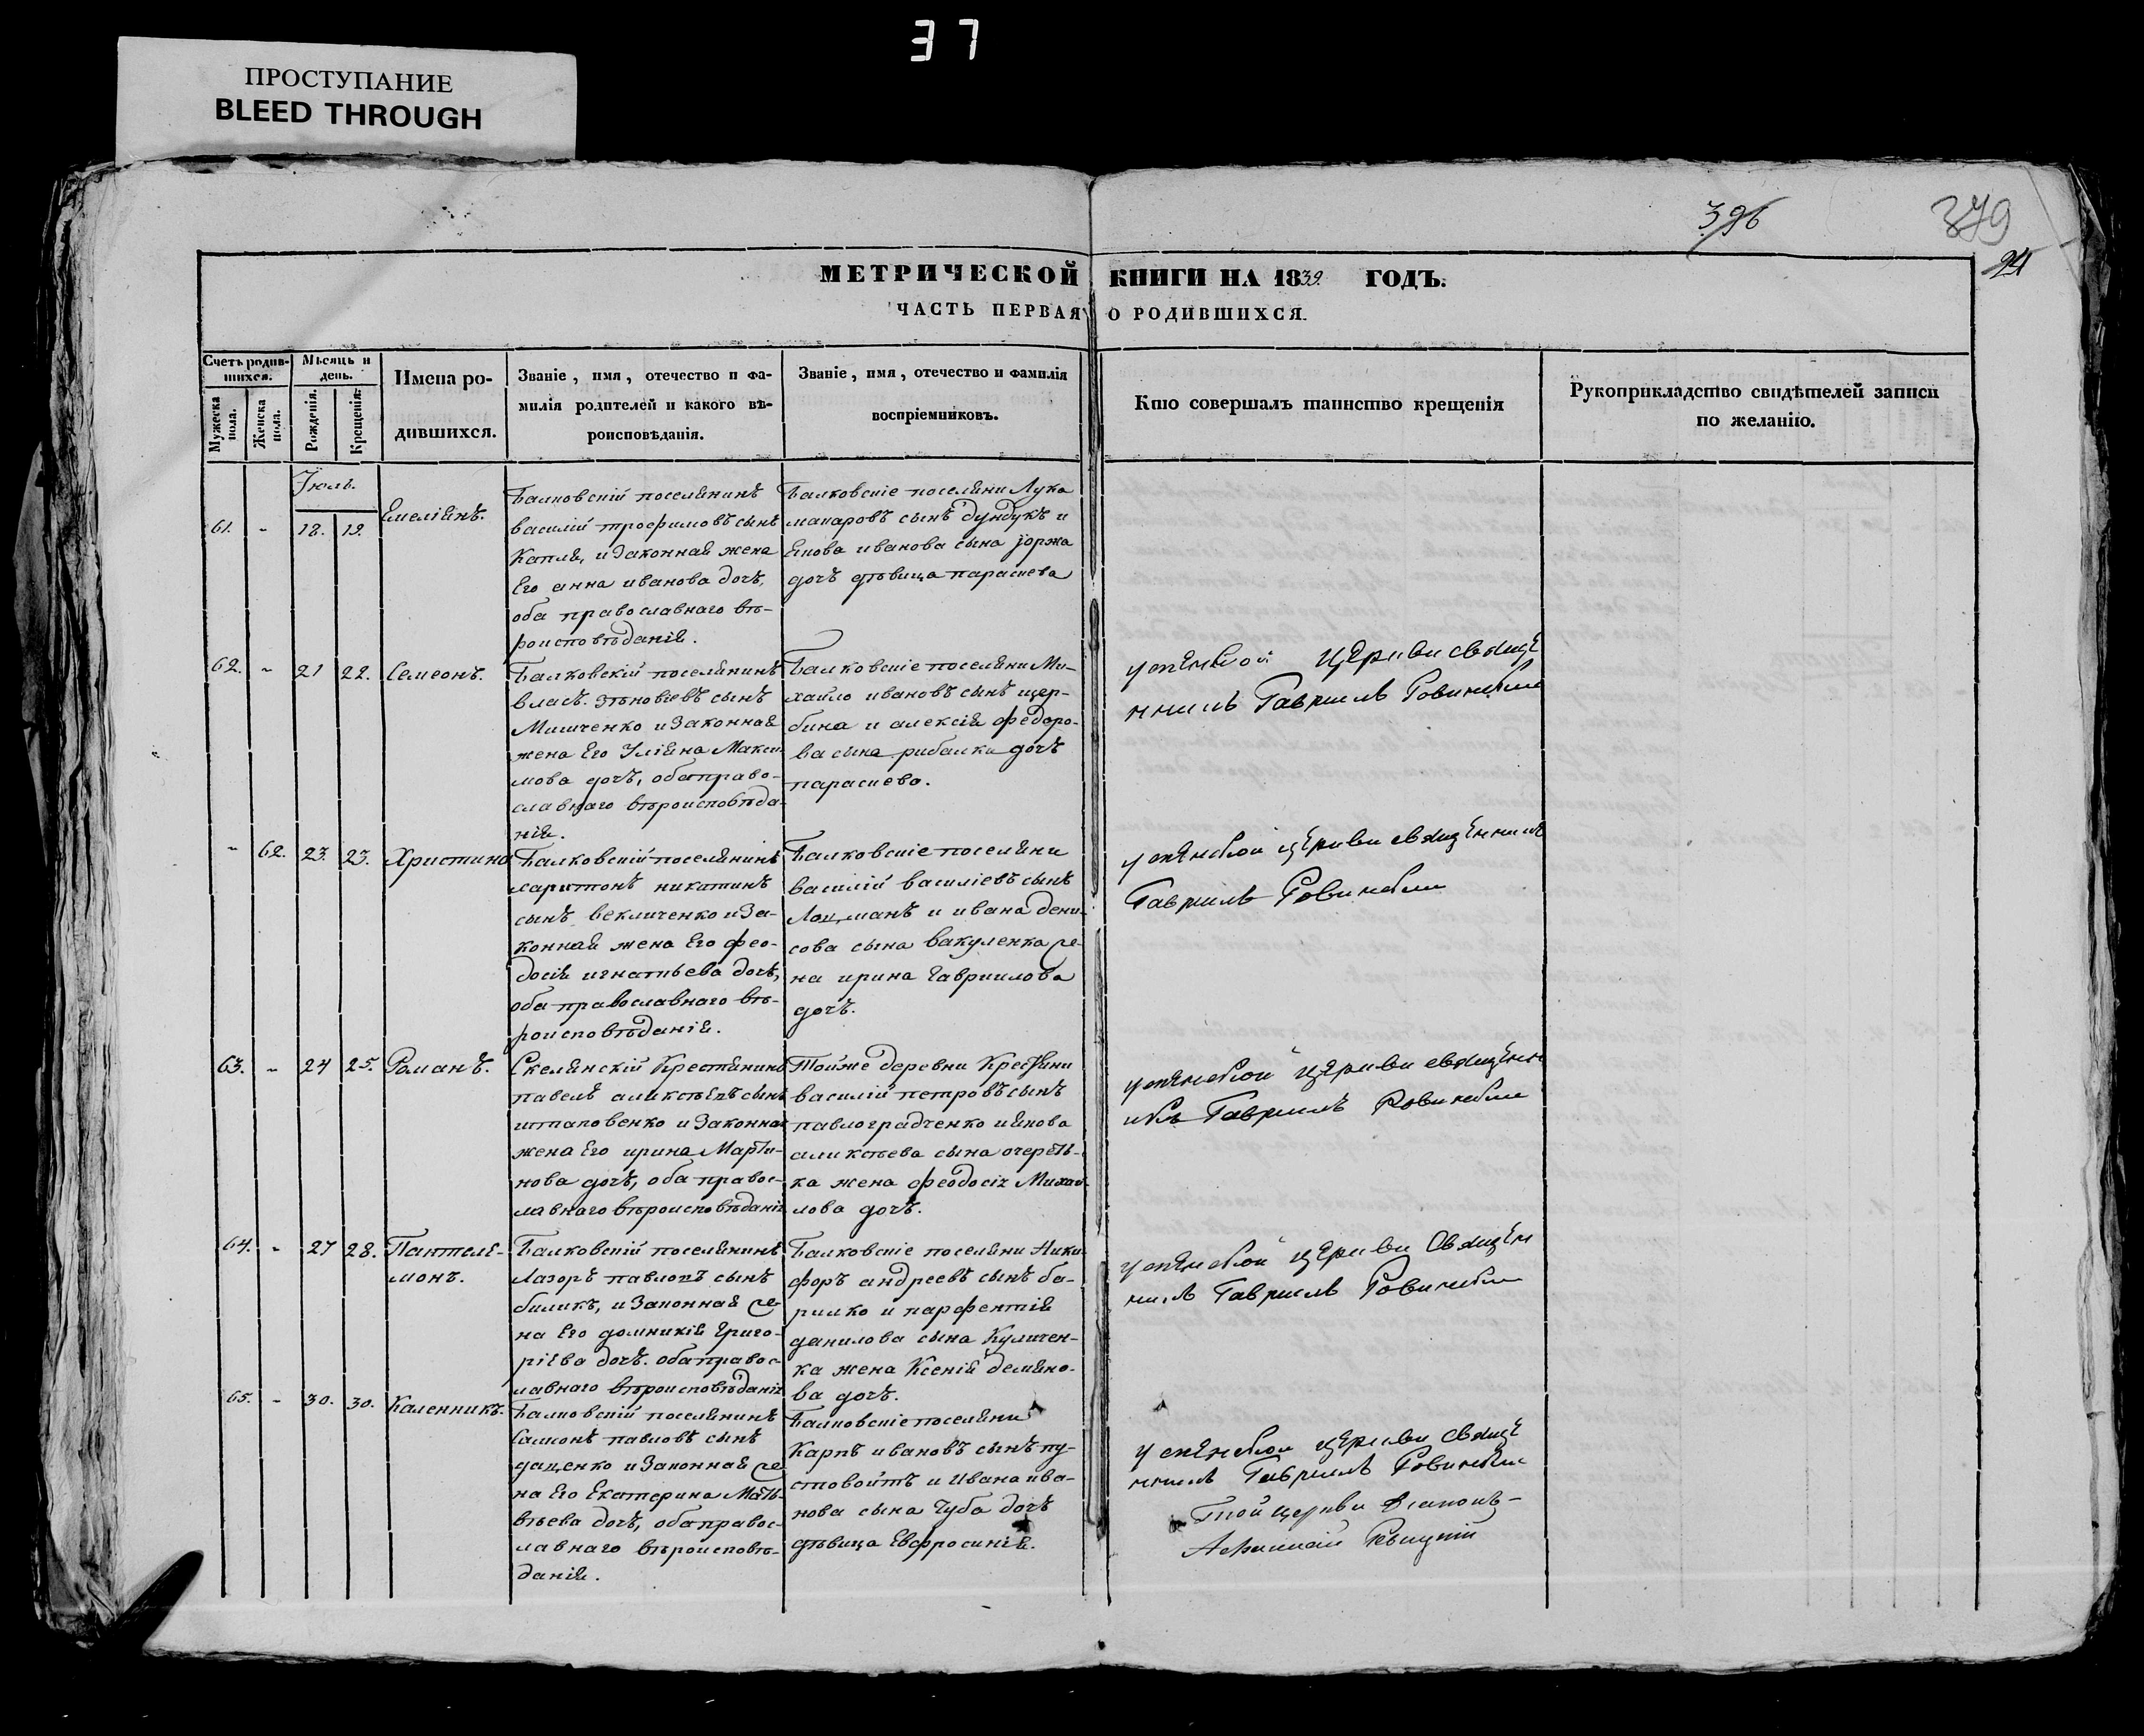 37
ПРОСТУПАНИЕ
BLEED THROUGH
396
379
МЕТРИЧЕСКОЙ КНИГИ НА 1839. ГОДЪ.
ЧАСТЬ ПЕРВАЯ О РОДИВШИХСЯ.
Счетъ родив-
шихся.
Мужеска
пола.
Женска
пола.
Мѣсяцъ и
день.
Рожденія.
Крещенія.
Имена ро-
дившихся.
Званіе, имя, отечество и фа-
милія родителей и какого вѣ-
роисповѣданія.
Званіе, имя, отечество и фамилія
воспріемниковъ.
Кто совершалъ таинство крещенія
Рукоприкладство свидѣтелей записи
по желанію.
Іюль.
61. - 18. 19.
Емеліянъ.
Балковскій поселянинъ
василій трофимовъ сынъ
Капля, и законная жена
Его анна иванова дочь,
оба православнаго вѣ-
роисповѣданія.
Балковскіе поселяни Лука
макаровъ сынъ дундукъ и
якова иванова сына
дочь дѣвица параскева
62. - 21 22. Семеонъ.
Балковскій поселянинъ
власъ зѣновіевъ сынъ
Мишченко и законная
жена Его Уліяна Макси-
мова дочь, оба право-
славнаго вѣроисповѣда-
нія.
Балковскіе поселяни Ми-
хайло ивановъ сынъ щер-
бина и алексія федоро-
ва сына рибалки дочь
параскева.
успенской церкви свяще
нникъ Гавриилъ Ровинскій
- 62. 23. 23. Христина
Балковскій поселянинъ
харитонъ никитинъ
сынъ векличенко и за-
конная жена Его фео-
досія игнатьева дочь,
оба православнаго вѣ-
роисповѣданія.
Балковскіе поселяни
василій василіевъ сынъ
Лоцманъ и ивана дени-
сова сына вакуленка же-
на ирина гавриилова
дочь.
успенской церкви священникъ
Гавриилъ Ровинскій
63. - 24 25. Романъ.
Скелянскій Крестянинъ
павелъ аликсѣевъ сынъ
штаповенко и законная
жена Его ирина Марти-
нова дочь, оба правос-
лавнаго вѣроисповѣданія
Тойже деревни Крестяни
василій петровъ сынъ
павлоградченко и якова
аликсѣева сына очереть-
ка жена феодосія Михай-
лова дочь.
успенской церкви священн
икъ Гавриилъ Ровинскій
64. - 27 28. Пантеле-
монъ.
Балковскій поселянинъ
Лазоръ павловъ сынъ
биликъ, и законная же-
на Его домникія григо-
ріева дочь. оба правос-
лавнаго вѣроисповѣданія
Балковскіе поселяни Ники-
форъ андреевъ сынъ ба-
рилко и парфентія
данилова сына Куличен-
ка жена Ксенія демяно-
ва дочь.
успенской церкви Священ
никъ Гавриилъ Ровинскій
65. - 30. 30. Каленникъ.
Балковскій поселянинъ
Самсонъ павловъ сынъ
даценко и законная же-
на Его Екатерина Мать-
вѣева дочь, оба правос-
лавнаго вѣроисповѣ-
данія.
Балковскіе поселяни
Карпъ ивановъ сынъ пу-
стовойтъ и Ивана ива-
нова сына Чуба дочь
дѣвица Евфросинія.
успенской церкви Свяще
нникъ Гавриилъ Ровинскій
Той церкви